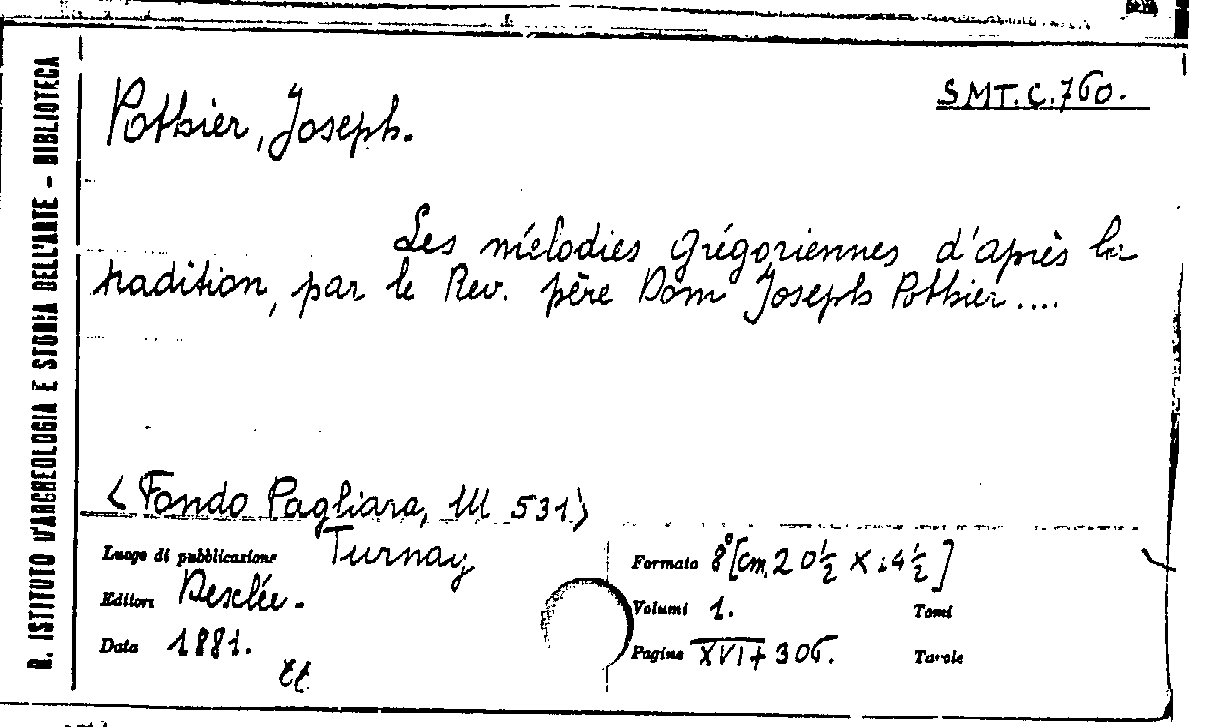 R. ISTITUTO D'ARCHEOLOGIA E STORIA DELL'ARTE - BIBLIOTECA
SMT.C.760.
Pothier, Joseph.
Les mélodies grégoriennes d'après la
tradition, par le Rev. père Dom Joseph Pothier....
<Fondo Pagliara, III 531>
Luogo di pubblicazione Turnay
Editore Desclée.
Data 1881.
Formato 8° [cm. 20½ X 14½]
Volumi 1. Tomi
Pagine XVI + 306. Tavole